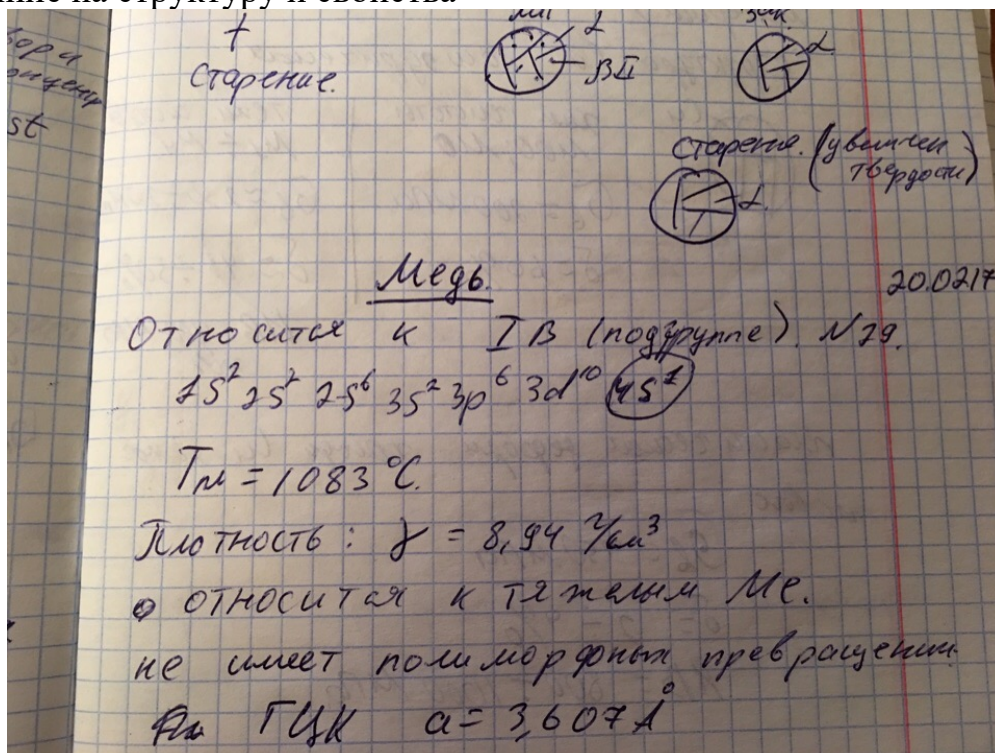 ние на структуру и свойства
st
+
старение.
α
βII
зак.
α
старение. (увеличен твердости)
α.
Медь.
20.0217
Относится к I В (подгруппе). N 29.
1S² 2S² 2S⁶ 3S² 3p⁶ 3d¹⁰ 4S¹
Tпл = 1083 °C.
Плотность: γ = 8,94 г/см³
относится к тяжелым Ме.
не имеет полиморфных превращений.
ГЦК a = 3,607 Å